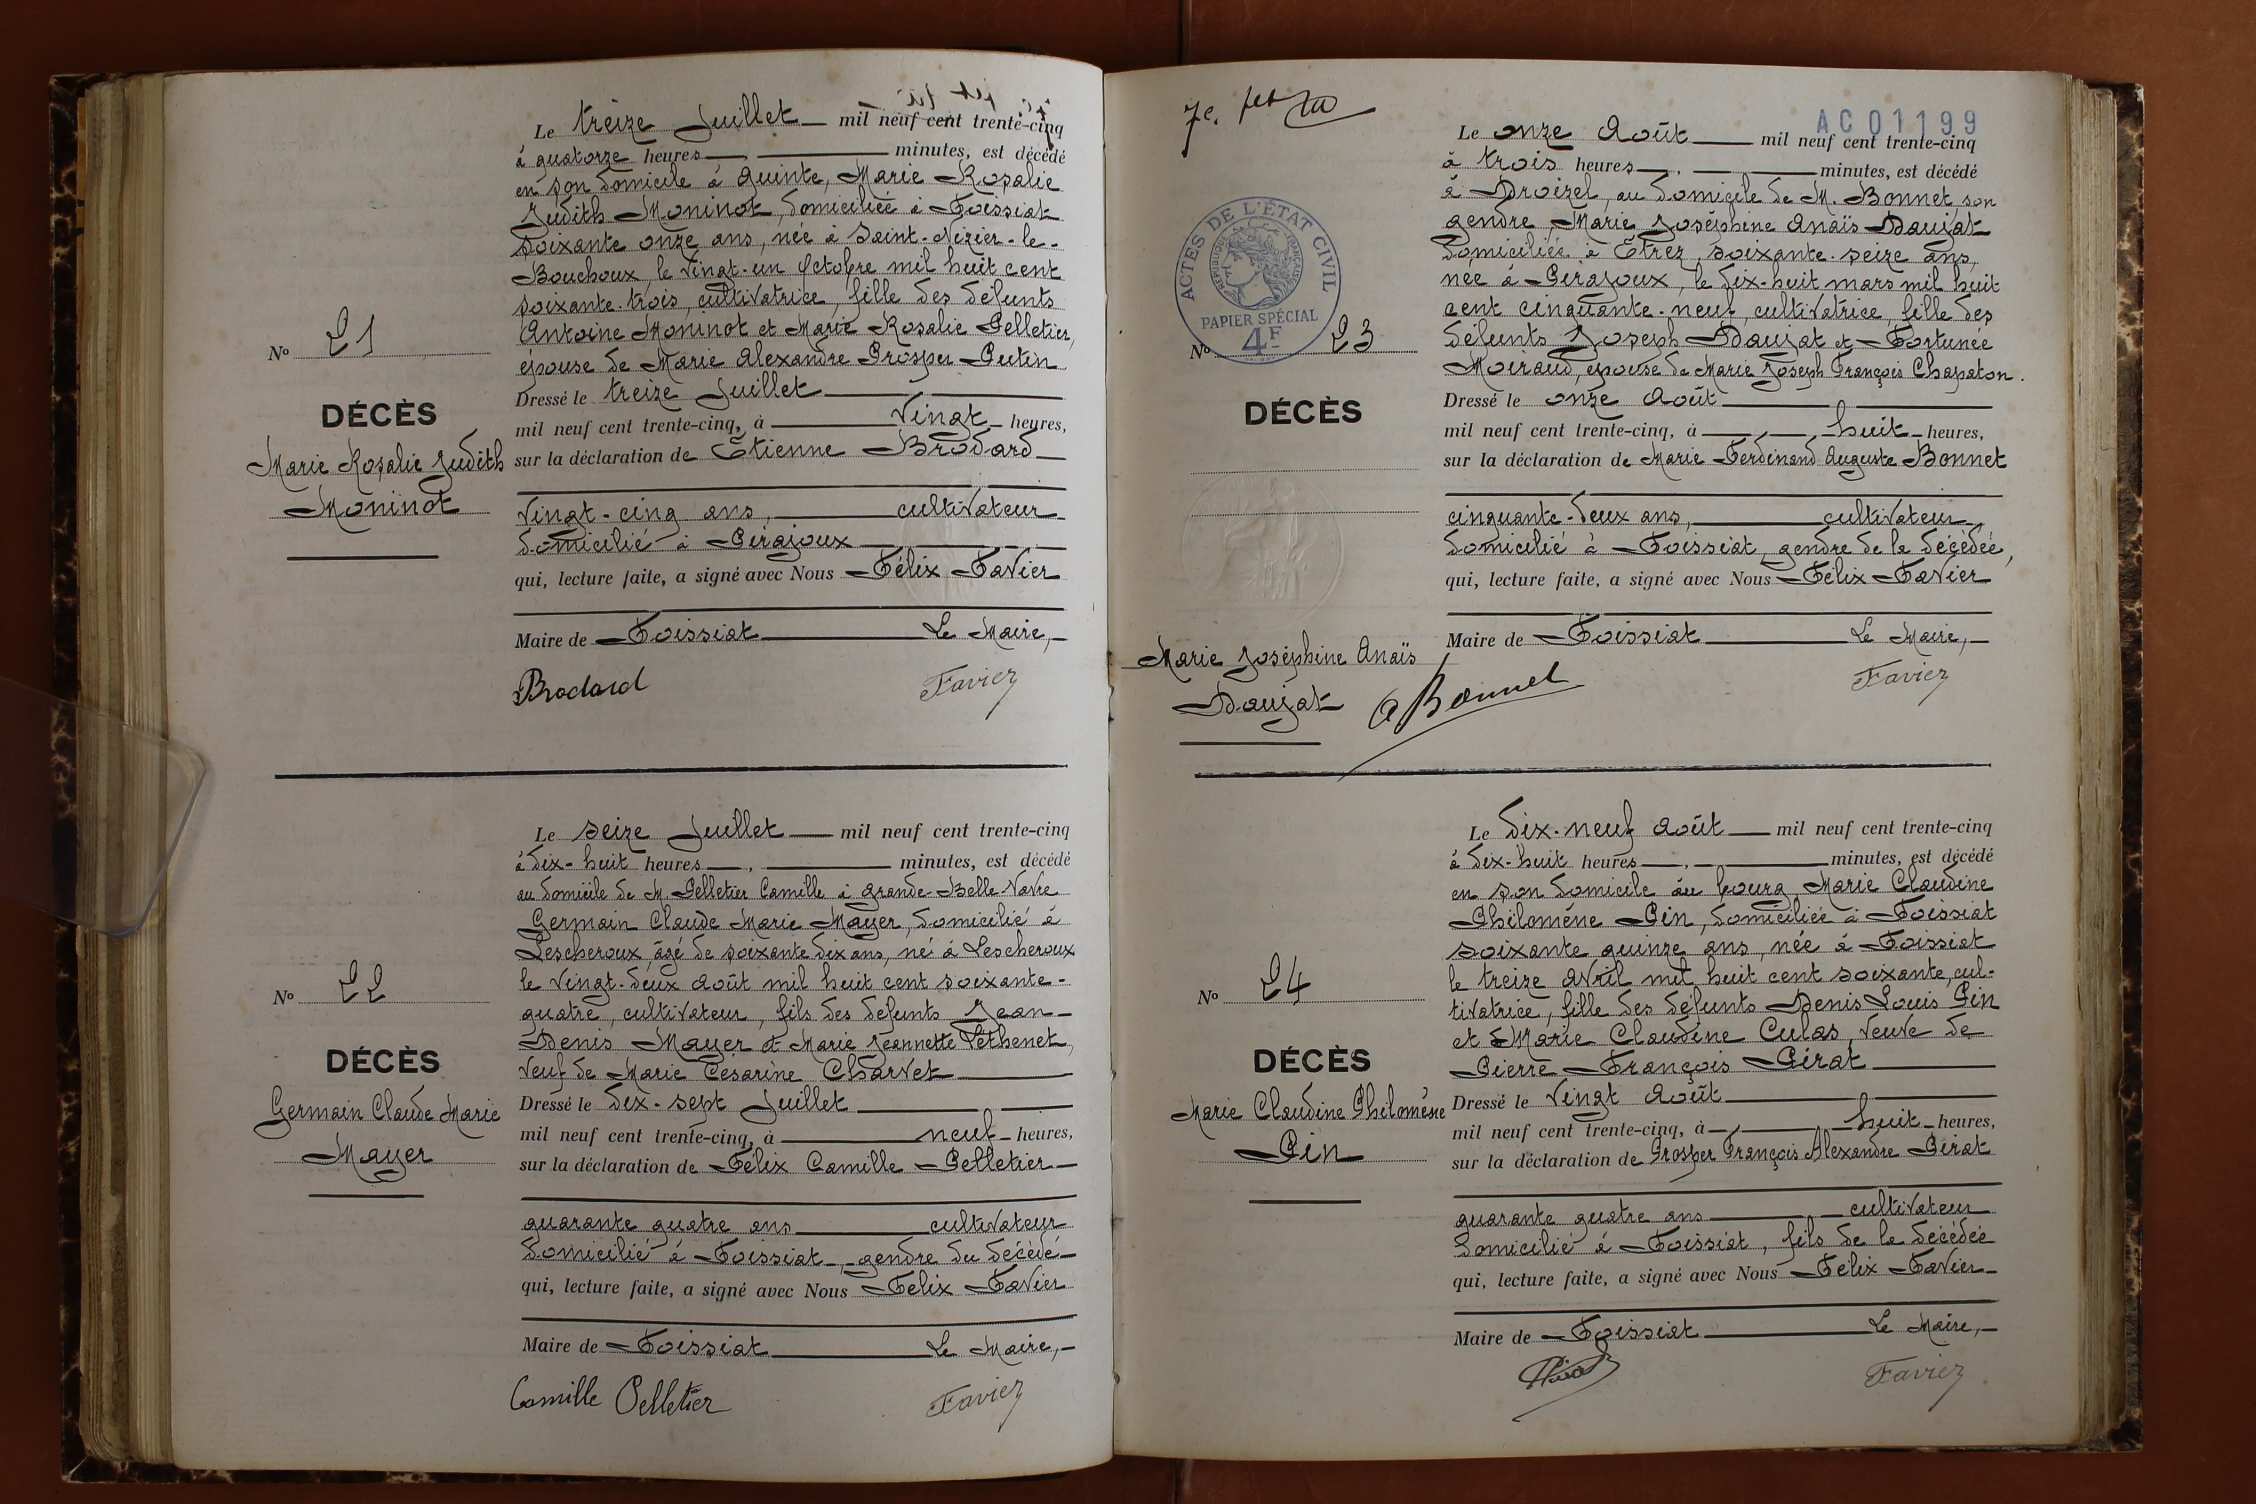 Le treize Juillet mil neuf cent trente-cinq
à quatorze heures, minutes, est décédé
en son domicile à Quinte, Marie Rosalie
Judith Moninot, domiciliée à Foissiat
soixante onze ans, née à Saint-Nizier-le-
Bouchoux, le vingt-un Octobre mil huit cent
soixante-trois, cultivatrice, fille des défunts
Antoine Moninot et Marie Rosalie Pelletier,
épouse de Marie Alexandre Prosper Putin
Nº 21
DÉCÈS
Marie Rosalie Judith
Moninot
Dressé le treize Juillet
mil neuf cent trente-cinq, à vingt heures,
sur la déclaration de Étienne Brodard
vingt-cinq ans, cultivateur
domicilié à Pirajoux
qui, lecture faite, a signé avec Nous Félix Favier
Maire de Foissiat Le Maire,
Brodard Favier
Le seize Juillet mil neuf cent trente-cinq
à dix-huit heures, minutes, est décédé
au domicile de M. Pelletier Camille à Grande-Belle-Vavre
Germain Claude Marie Mayer, domicilié à
Lescheroux, âgé de soixante dix ans, né à Lescheroux
le vingt-deux août mil huit cent soixante-
quatre, cultivateur, fils des défunts Jean-
Denis Mayer et Marie Jeannette Pethenet,
veuf de Marie Césarine Charvet
Nº 22
DÉCÈS
Germain Claude Marie
Mayer
Dressé le dix-sept Juillet
mil neuf cent trente-cinq, à neuf heures,
sur la déclaration de Félix Camille Pelletier
quarante quatre ans cultivateur
domicilié à Foissiat, gendre du décédé
qui, lecture faite, a signé avec Nous Félix Favier
Maire de Foissiat Le Maire,
Camille Pelletier Favier
7e.
AC01199
Le onze Août mil neuf cent trente-cinq
à trois heures, minutes, est décédé
à Droizel, au domicile de M. Bonnet son
gendre, Marie Joséphine Anaïs Daujat
domiciliée à Étrez, soixante-seize ans,
née à Pirajoux, le dix-huit mars mil huit
cent cinquante-neuf, cultivatrice, fille des
défunts Joseph Daujat et Fortunée
Moiraud, épouse de Marie Joseph François Chapaton.
ACTES DE L'ÉTAT CIVIL
RÉPUBLIQUE FRANÇAISE
PAPIER SPÉCIAL
4F
Nº 23
DÉCÈS
Marie Joséphine Anaïs
Daujat
Dressé le onze Août
mil neuf cent trente-cinq, à huit heures,
sur la déclaration de Marie Ferdinand Auguste Bonnet
cinquante-deux ans, cultivateur
domicilié à Foissiat, gendre de la décédée,
qui, lecture faite, a signé avec Nous Félix Favier
Maire de Foissiat Le Maire,
A Bonnet Favier
Le dix-neuf Août mil neuf cent trente-cinq
à dix-huit heures, minutes, est décédé
en son domicile au bourg Marie Claudine
Philomène Pin, domiciliée à Foissiat
soixante quinze ans, née à Foissiat
le treize avril mil huit cent soixante, cul-
tivatrice, fille des défunts Denis Louis Pin
et Marie Claudine Culas, veuve de
Pierre François Pirat
Nº 24
DÉCÈS
Marie Claudine Philomène
Pin
Dressé le vingt Août
mil neuf cent trente-cinq, à huit heures,
sur la déclaration de Prosper François Alexandre Pirat
quarante quatre ans cultivateur
domicilié à Foissiat, fils de la décédée
qui, lecture faite, a signé avec Nous Félix Favier
Maire de Foissiat Le Maire,
Pirat Favier